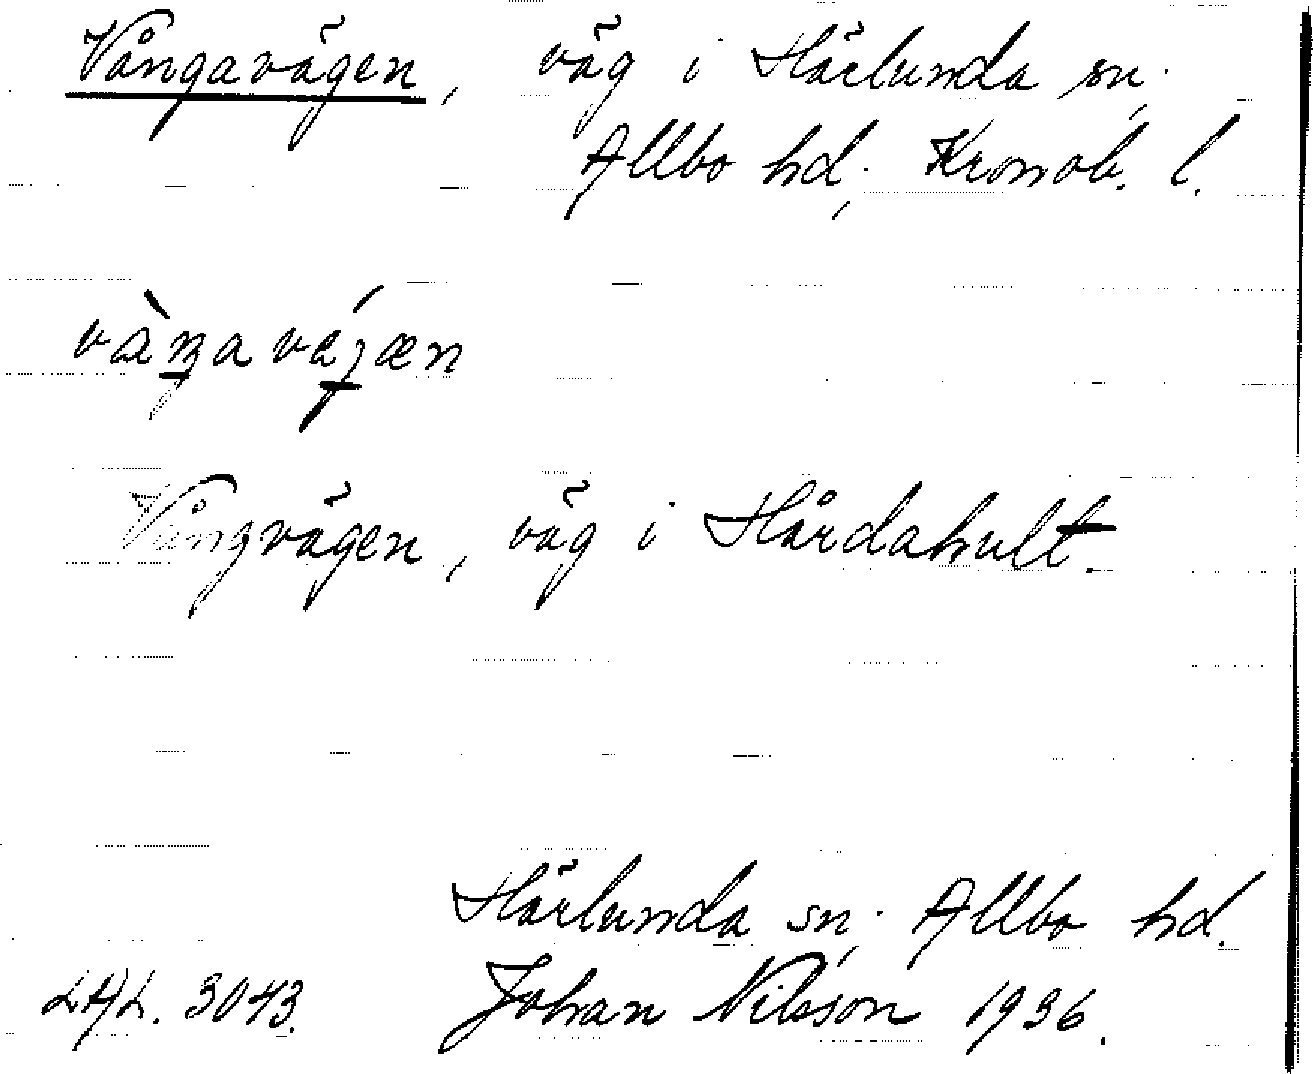 Vångavägen, väg i Härlunda sn;
Allbo hd; Kronob. l.
Vångvägen, väg i Hårdahult.
Härlunda sn; Allbo hd.
LAL. 3043. Johan Nilsson 1936.